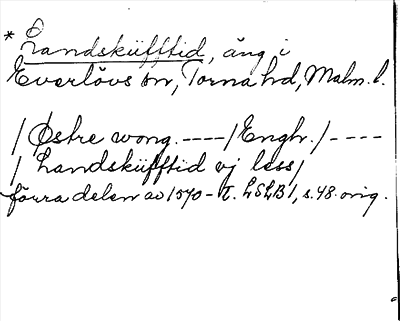 * Landsküfftid, äng i
Everlövs sn, Torna hd, Malm. l.
/ Østre wong. ---- / Enghr. / - - - -
/ Landsküfftid vj less /
förra delen av 1570-t. LSLB 1, s. 48. orig.